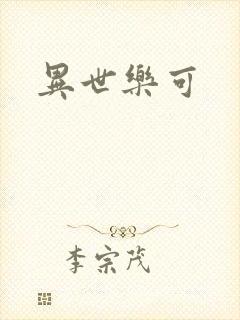 異世樂可
李宗茂